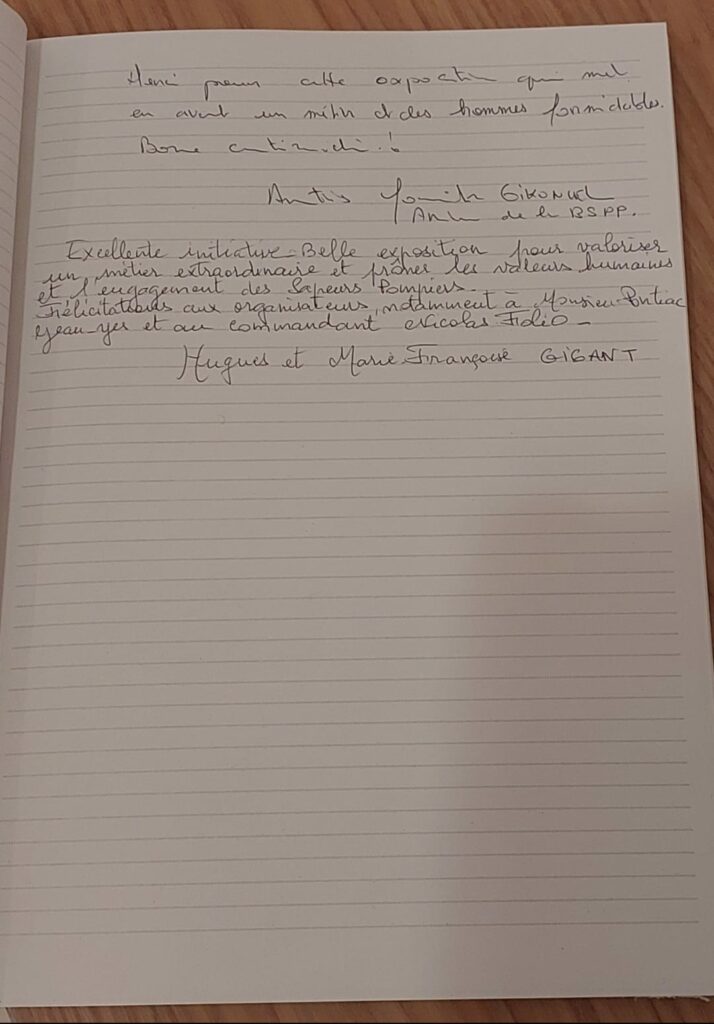 Merci pour cette exposition qui met
en avant un métier et des hommes formidables.
Bonne continuation !
Famille GIKONUEL
de la BSPP.
Excellente initiative - Belle exposition pour valoriser
un métier extraordinaire et prôner les valeurs humaines
et l'engagement des Sapeurs Pompiers.
Félicitations aux organisateurs, notamment à Monsieur Pontiac
Jean-Yves et au commandant Nicolas Fidio -
Hugues et Marie Françoise GIGANT